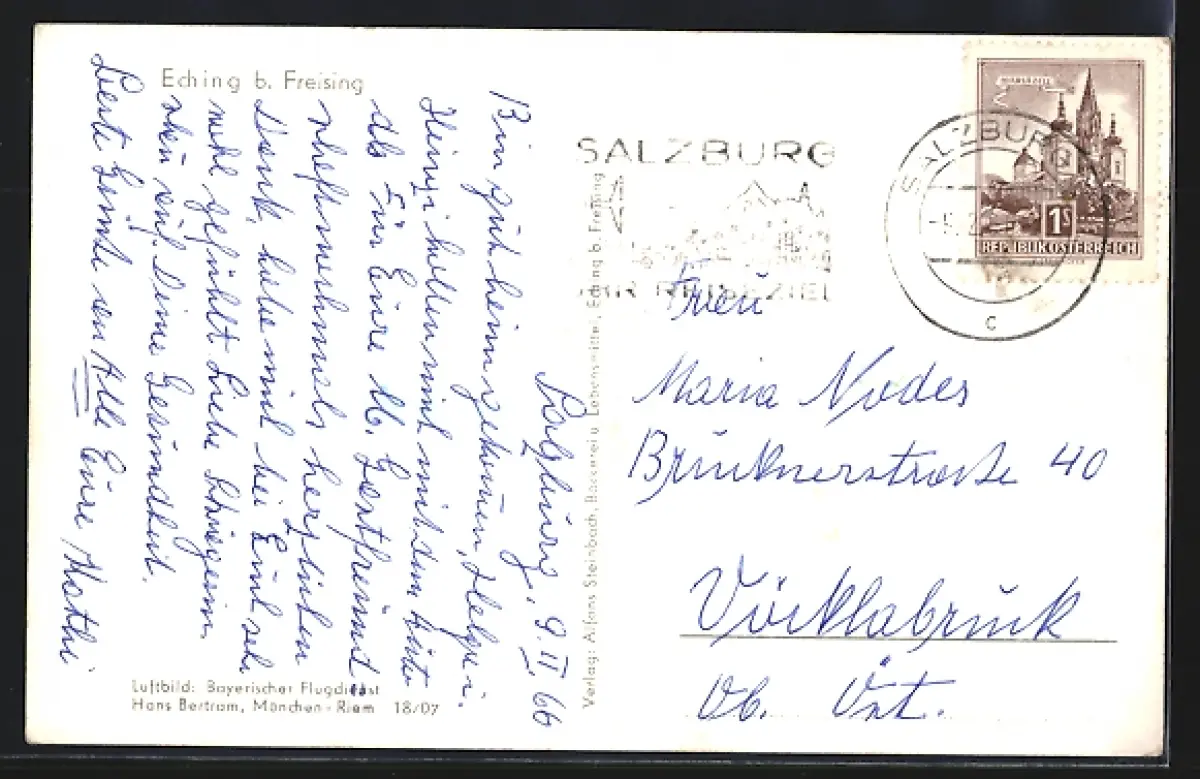 Eching b. Freising
Salzburg, 9. II. 66
Bin gut heimgekommen, Helga u.
Heinzi holten mich mit dem Auto
ab. Für Eure Gastfreundschaft
nochmals herzlichen
Dank, habe mich bei Euch sehr
wohl gefühlt. Liebe Schwägerin
schau auf Deine Gesundheit.
Beste Grüße an Alle Eure Kathi
Luftbild: Bayerischer Flugdienst
Hans Bertram, München-Riem 18/07
Verlag: Alfons Steinbach, Bäckerei u. Lebensmittel, Eching b. Freising
SALZBURG
IHR REISEZIEL
SALZBURG
C
MARIAZELL
1S
REPUBLIK ÖSTERREICH
Frau
Maria Nodes
Brucknerstrasse 40
Vöcklabruck
Ob. Öst.